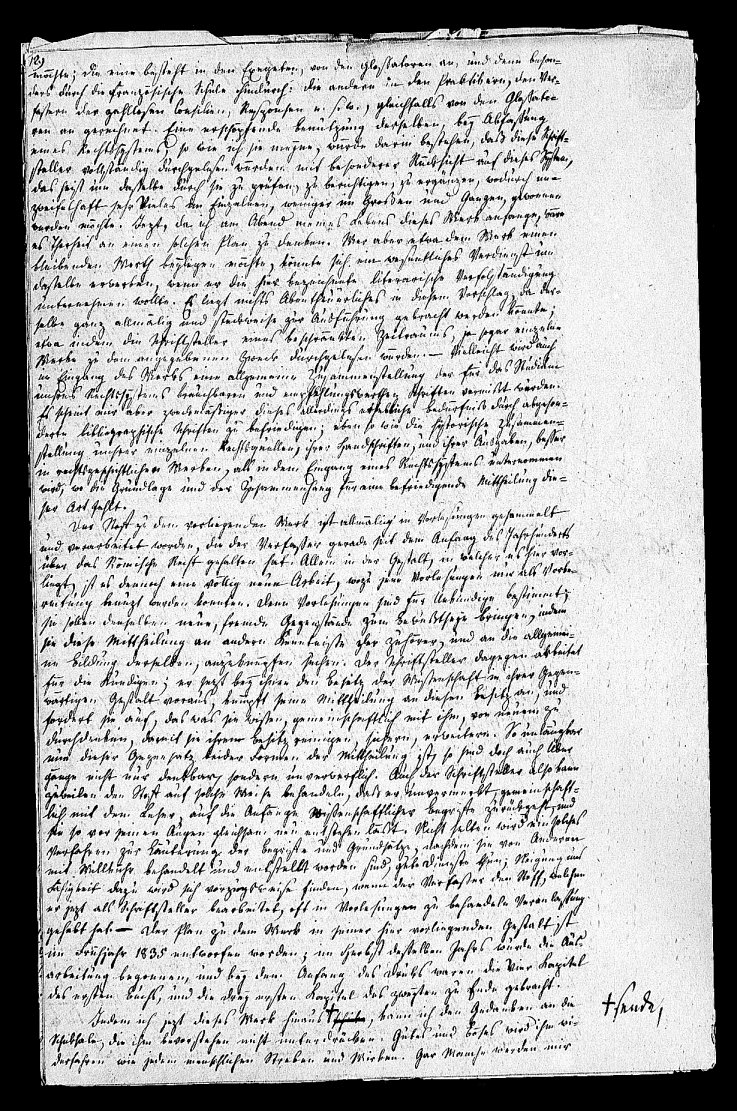 129
möchte; die eine besteht in den Exegeten, von den Glossatoren an, und dann beson-
ders durch die französische Schule hindurch: die andern in den Praktikern, den Ver-
fassern der zahllosen Consilien, Responsen u. s. w., gleichfalls von den Glossato-
ren an gerechnet. Eine erschöpfende Benutzung derselben, bey Abfassung
eines Rechtssystems, so wie ich sie meyne, würde darin bestehen, daß diese Schrift-
steller vollständig durchgelesen würden mit besonderer Rücksicht auf dieses System,
das heißt um dasselbe durch sie zu prüfen, zu berichtigen, zu ergänzen, wodurch un-
zweifelhaft sehr Vieles im Einzelnen, weniger im Großen und Ganzen, gewonnen
werden möchte. Jetzt, da ich am Abend meines Lebens dieses Werk anfange, wäre
es Thorheit an einen solchen Plan zu denken. Wer aber etwa dem Werk einen
bleibenden Werth beylegen möchte, könnte sich ein wesentliches Verdienst um
dasselbe erwerben, wenn er die hier bezeichnete literarische Vervollständigung
unternehmen wollte. Es liegt nichts Abentheuerliches in diesem Vorschlag, da der-
selbe ganz allmälig und stückweise zur Ausführung gebracht werden könnte;
etwa indem die Schriftsteller eines beschränkten Zeitraums, ja sogar einzelne
Werke zu dem angegebenen Zweck durchgelesen würden. — Vielleicht wird auch
im Eingang des Werks eine allgemeine Zusammenstellung der für das Studium
unsres Rechtssystems brauchbaren und empfehlungswerthen Schriften vermißt werden.
Es scheint mir aber zweckmäßiger dieses allerdings erhebliche Bedürfniß durch abgeson-
derte bibliographische Schriften zu befriedigen; eben so wie die historische Zusammen-
stellung unsrer einzelnen Rechtsquellen, ihrer Handschriften, und ihrer Ausgaben, besser
in rechtsgeschichtlichen Werken, als in dem Eingang eines Rechtssystems unternommen
wird, wo die Grundlage und der Zusammenhang für eine befriedigende Mittheilung die-
ser Art fehlt.
Der Stoff zu dem vorliegenden Werk ist allmälig in Vorlesungen gesammelt
und verarbeitet worden, die der Verfasser gerade seit dem Anfang des Jahrhunderts
über das Römische Recht gehalten hat. Allein in der Gestalt, in welcher es hier vor-
liegt, ist es dennoch eine völlig neue Arbeit, wozu jene Vorlesungen nur als Vorbe-
reitung benutzt werden konnten. Denn Vorlesungen sind für Unkundige bestimmt;
sie sollen denselben neue, fremde Gegenstände zum Bewußtseyn bringen, indem
sie diese Mittheilung an andere Kenntnisse der Zuhörer, und an die allgemei-
ne Bildung derselben, anzuknüpfen suchen. Der Schriftsteller dagegen arbeitet
für die Kundigen; er setzt bey ihnen den Besitz der Wissenschaft in ihrer gegen-
wärtigen Gestalt voraus, knüpft seine Mittheilung an diesen Besitz an, und
fordert sie auf, das was sie wissen, gemeinschaftlich mit ihm, von neuem zu
durchdenken, damit sie ihren Besitz reinigen, sichern, erweitern. So unläugbar
nun dieser Gegensatz beider Formen der Mittheilung ist, so sind doch auch Über-
gänge nicht nur denkbar, sondern unverwerflich. Auch der Schriftsteller also kann
zuweilen den Stoff auf solche Weise behandeln, daß er unvermerkt, gemeinschaft-
lich mit dem Leser, auf die Anfänge wissenschaftlicher Begriffe zurückgeht, und
sie so vor seinen Augen gleichsam neu entstehen läßt. Nicht selten wird ein solches
Verfahren zur Läuterung der Begriffe und Grundsätze, nachdem sie von Anderen
mit Willkühr behandelt und entstellt worden sind, gute Dienste thun; Neigung und
Fähigkeit dazu wird sich vorzugsweise finden, wenn der Verfasser den Stoff, welchen
er jetzt als Schriftsteller bearbeitet, oft in Vorlesungen zu behandeln Veranlassung
gehabt hat. — Der Plan zu dem Werk in seiner hier vorliegenden Gestalt ist
im Frühjahr 1835 entworfen worden; im Herbst desselben Jahres wurde die Aus-
arbeitung begonnen, und bey dem Anfang des Drucks waren die vier Kapitel
des ersten Buchs, und die drey ersten Kapitel des zweyten zu Ende gebracht.
Indem ich jetzt dieses Werk hinaus †, kann ich den Gedanken an die
Schicksale, die ihm bevorstehen nicht unterdrücken. Gutes und Böses wird ihm wi-
derfahren wie jedem menschlichen Streben und Wirken. Gar Manche werden mir
† sende,